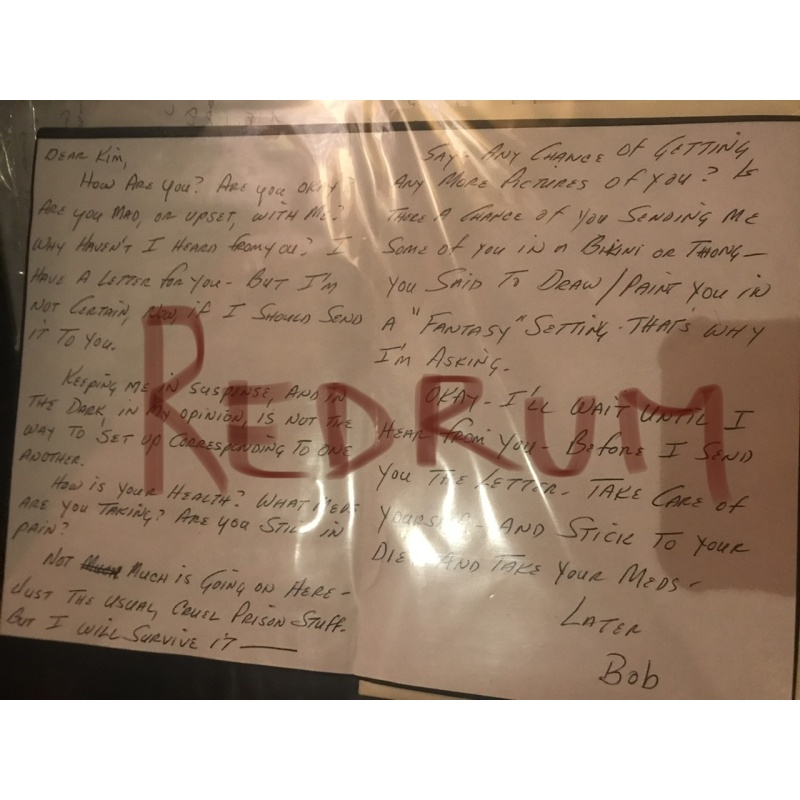 DEAR KIM,
HOW ARE YOU? ARE YOU OKAY?
ARE YOU MAD, OR UPSET, WITH ME?
WHY HAVEN'T I HEARD FROM YOU? I
HAVE A LETTER FOR YOU - BUT I'M
NOT CERTAIN, NOW, IF I SHOULD SEND
IT TO YOU.
KEEPING ME IN SUSPENSE, AND IN
THE DARK, IN MY OPINION, IS NOT THE
WAY TO SET UP CORRESPONDING TO ONE
ANOTHER.
HOW IS YOUR HEALTH? WHAT MEDS
ARE YOU TAKING? ARE YOU STILL IN
PAIN?
NOT MUCH IS GOING ON HERE -
JUST THE USUAL, CRUEL PRISON STUFF.
BUT I WILL SURVIVE IT —
SAY - ANY CHANCE OF GETTING
ANY MORE PICTURES OF YOU? IS
THERE A CHANCE OF YOU SENDING ME
SOME OF YOU IN A BIKINI OR THONG —
YOU SAID TO DRAW/PAINT YOU IN
A "FANTASY" SETTING. THAT'S WHY
I'M ASKING.
OKAY - I'LL WAIT UNTIL I
HEAR FROM YOU - BEFORE I SEND
YOU THE LETTER. TAKE CARE OF
YOURSELF - AND STICK TO YOUR
DIET AND TAKE YOUR MEDS -
LATER
Bob
REDRUM